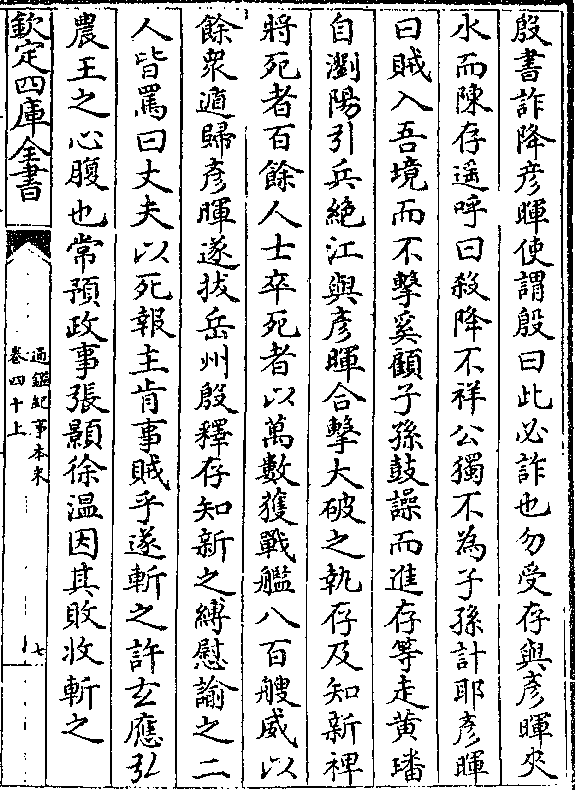 殷書詐降彦暉使謂殷曰此必詐也勿受存與彦暉夾
水而陳存遥呼曰殺降不祥公獨不為子孫計耶彦暉
曰賊入吾境而不擊奚顧子孫鼓譟而進存等走黄璠
自瀏陽引兵絶江與彦暉合擊大破之執存及知新裨
將死者百餘人士卒死者以萬數獲戰艦八百艘威以
餘衆遁歸彦暉遂拔岳州殷釋存知新之縛慰諭之二
人皆罵曰丈夫以死報主肯事賊乎遂斬之許玄應弘
農王之心腹也常預政事張顥徐温因其敗收斬之
欽定四庫全書
通鑑紀事本末
卷四十上
七